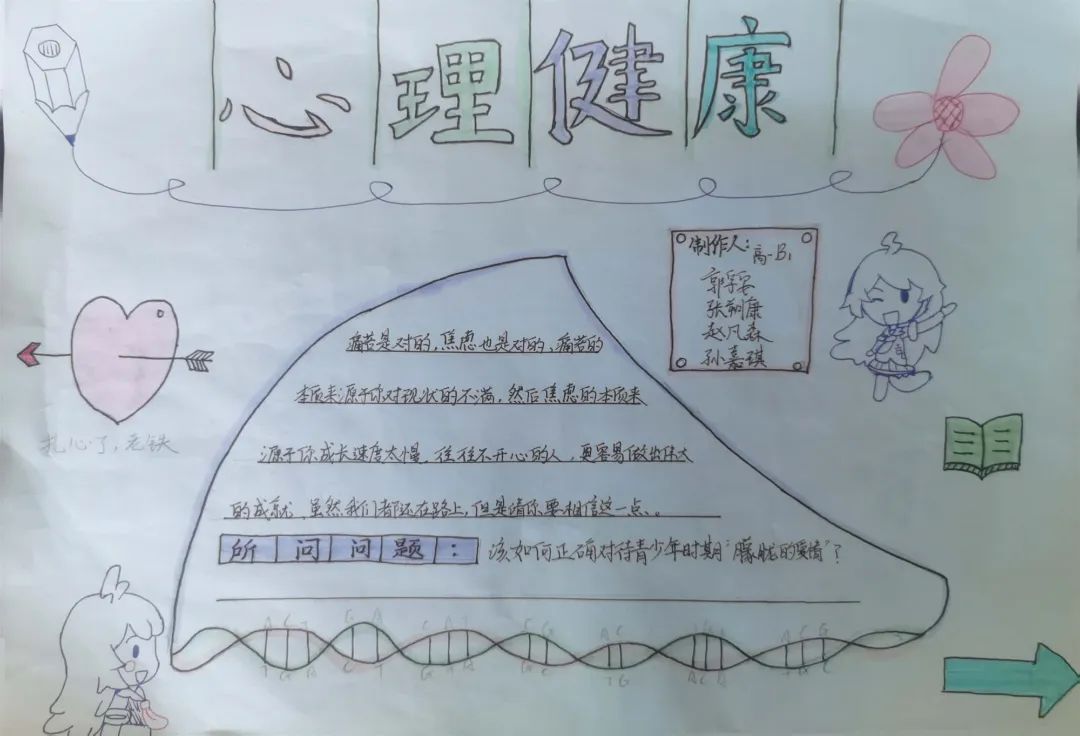 心理健康
制作人:高一B1
郭孚安
张朝康
赵凡森
孙嘉琪
痛苦是对的,焦虑也是对的,痛苦的
本质来源于你对现状的不满,然后焦虑的本质来
源于你成长速度太慢。往往不开心的人,更容易做出伟大
的成就。虽然我们都还在路上,但是请你要相信这一点。
扎心了,老铁
所问问题:该如何正确对待青少年时期“朦胧的爱情”?